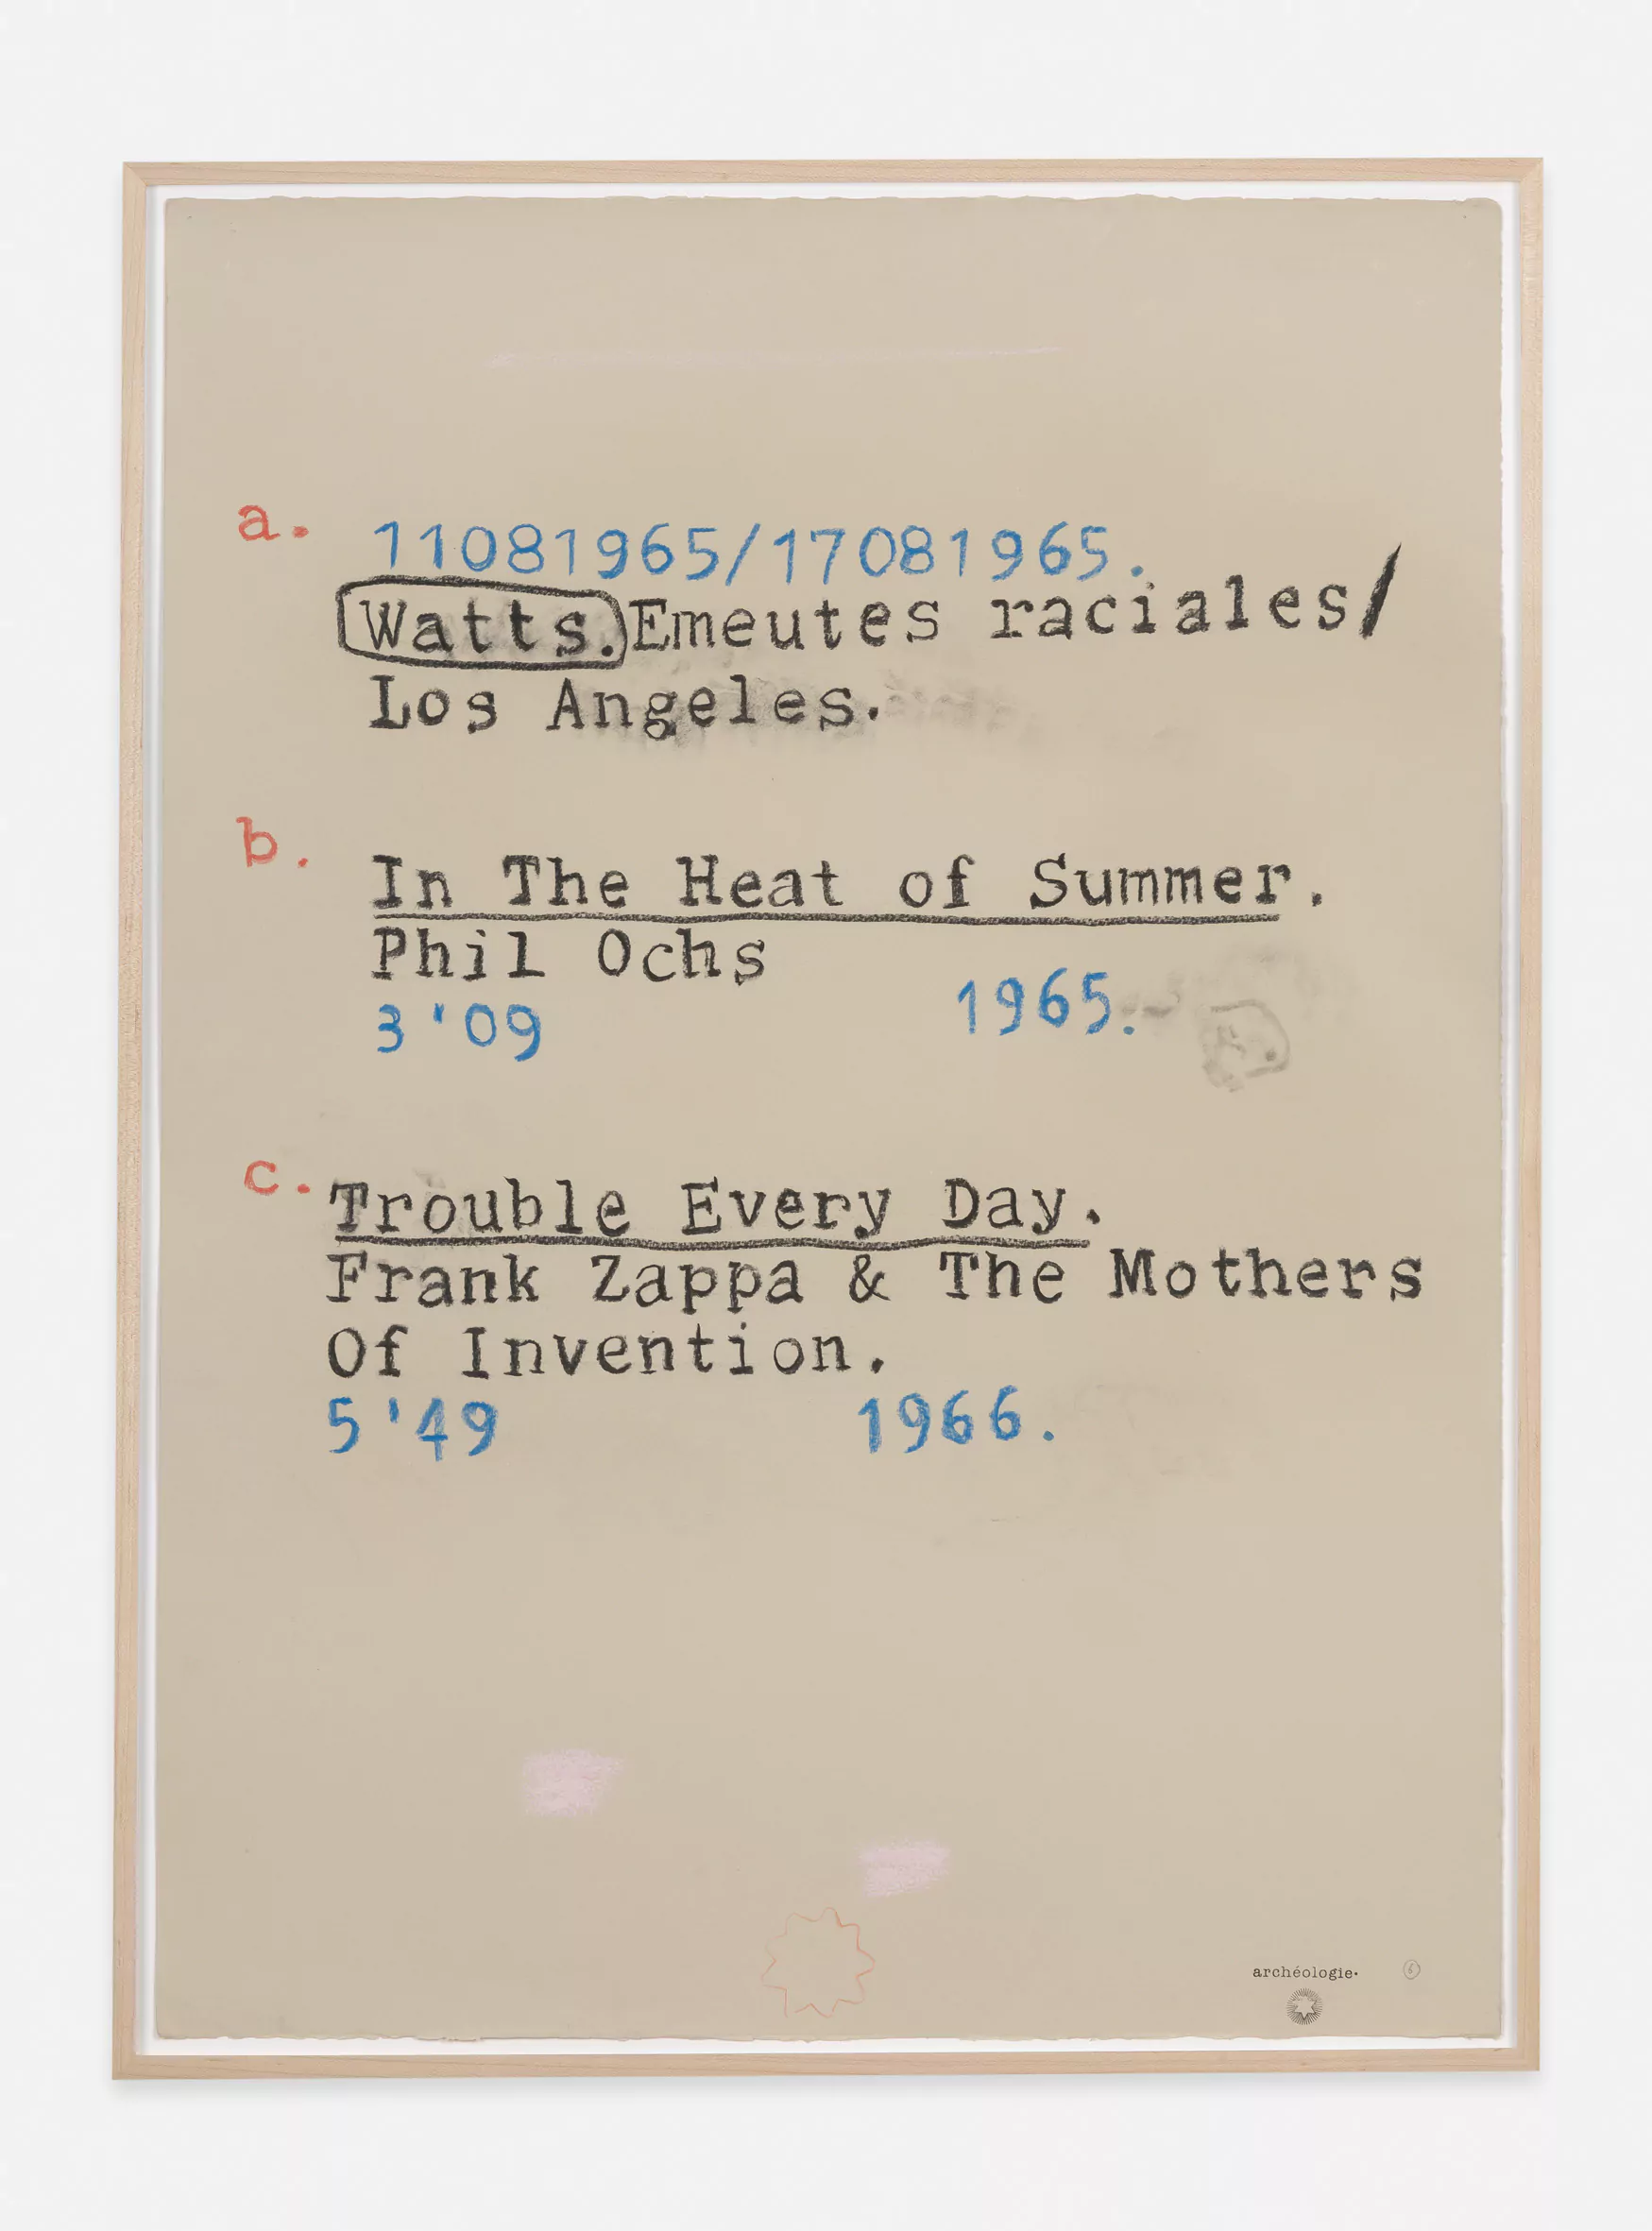 a. 11081965/17081965.
Watts. Emeutes raciales/
Los Angeles.
b. In The Heat of Summer.
Phil Ochs
3'09 1965.
c. Trouble Every Day.
Frank Zappa & The Mothers
Of Invention.
5'49 1966.
archéologie. 6